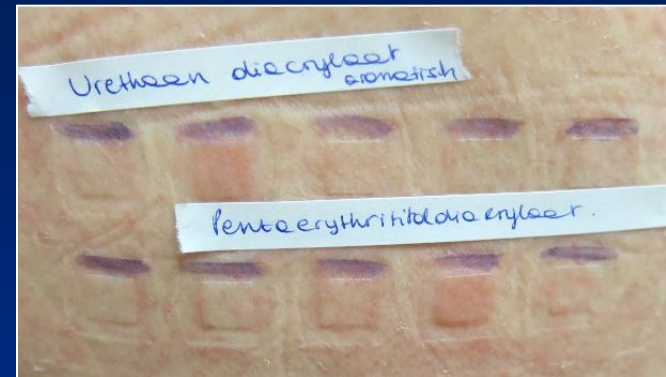 Urethaan diacrylaat
aromatisch
Pentaerythrititoldiacrylaat.